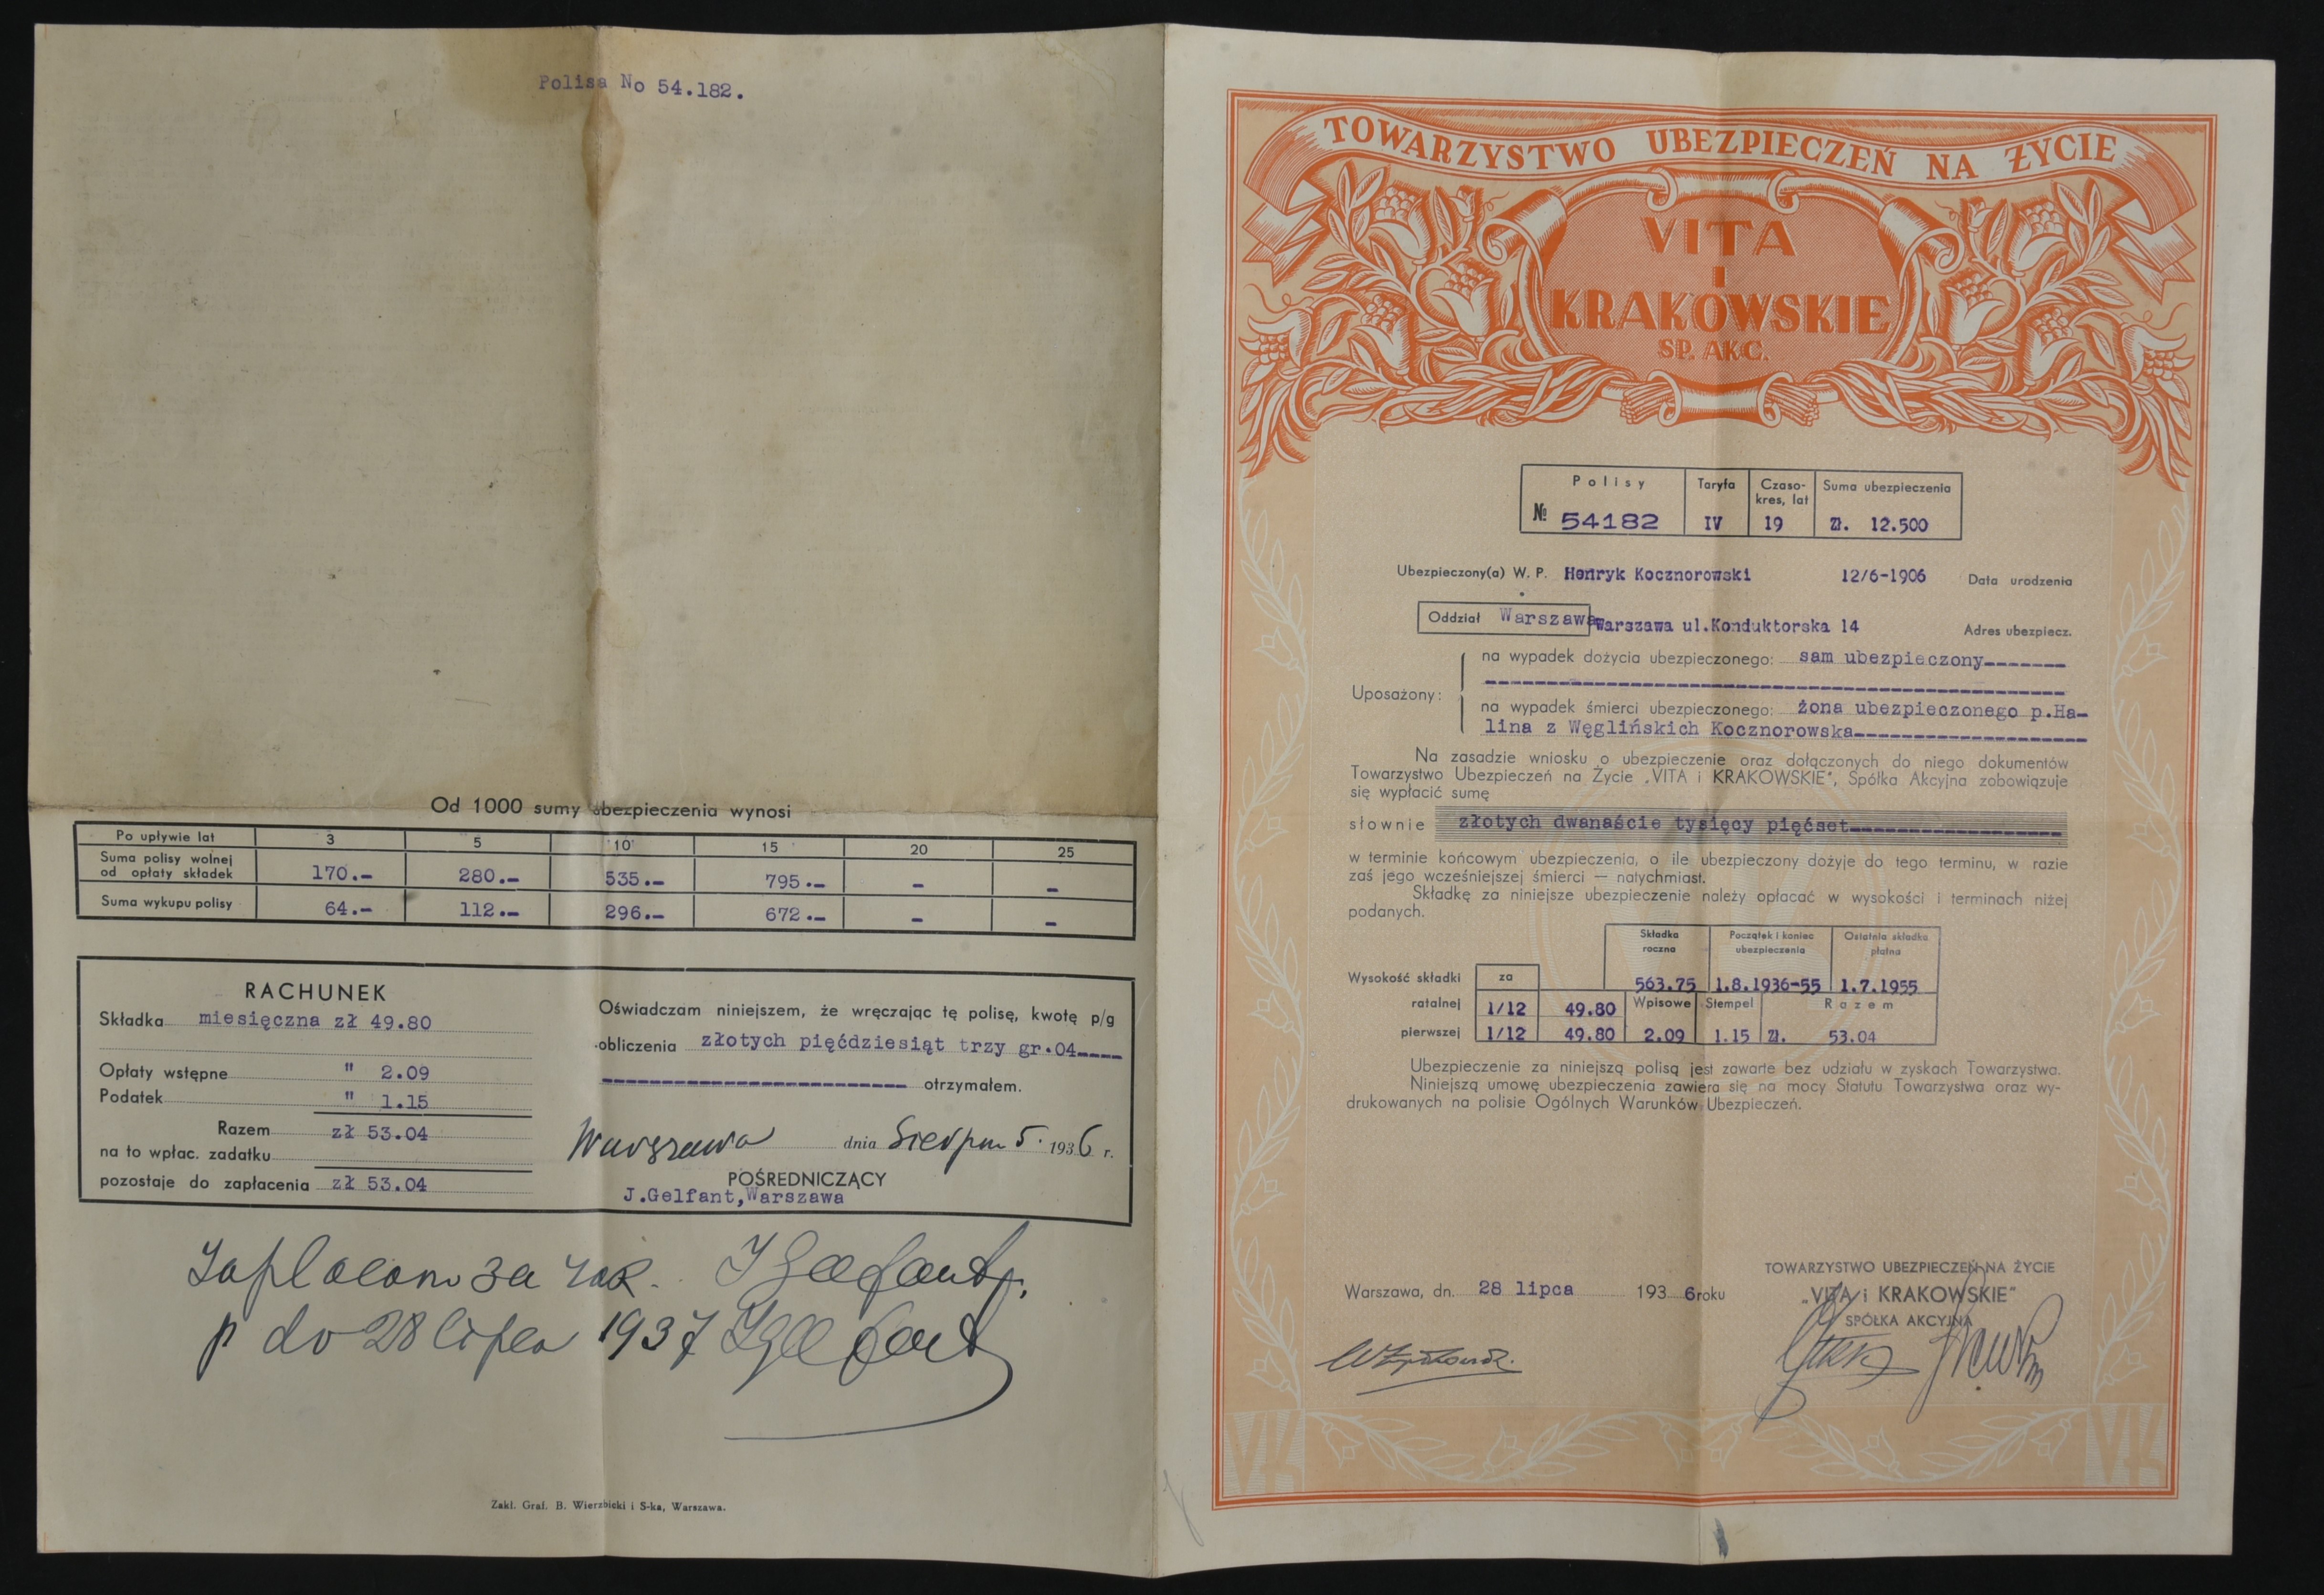 Polisa No 54.182.
Od 1000 sumy ubezpieczenia wynosi
Po upływie lat 3 5 10 15 20 25
Suma polisy wolnej
od opłaty składek 170.- 280.- 535.- 795.- - -
Suma wykupu polisy 64.- 112.- 296.- 672.- - -
RACHUNEK
Składka miesięczna zł 49.80
Opłaty wstępne " 2.09
Podatek " 1.15
Razem zł 53.04
na to wpłac. zadatku
pozostaje do zapłacenia zł 53.04
Oświadczam niniejszem, że wręczając tę polisę, kwotę p/g
obliczenia złotych pięćdziesiąt trzy gr.04----
------------------------- otrzymałem.
Warszawa dnia Sierpnia 5. 1936 r.
POŚREDNICZĄCY
J.Gelfant,Warszawa
za rok.
do 28 lipca 1937
Zakł. Graf. B. Wierzbicki i S-ka, Warszawa.
TOWARZYSTWO UBEZPIECZEŃ NA ŻYCIE
VITA
I
KRAKOWSKIE
SP. AKC.
Polisy Taryfa Czaso-
kres, lat Suma ubezpieczenia
№ 54182 IV 19 Zł. 12.500
Ubezpieczony(a) W. P. Henryk Kocznorowski 12/6-1906 Data urodzenia
Oddział Warszawa Warszawa ul.Konduktorska 14 Adres ubezpiecz.
Uposażony:
na wypadek dożycia ubezpieczonego: sam ubezpieczony-------
na wypadek śmierci ubezpieczonego: żona ubezpieczonego p.Ha-
lina z Węglińskich Kocznorowska--------------------
Na zasadzie wniosku o ubezpieczenie oraz dołączonych do niego dokumentów
Towarzystwo Ubezpieczeń na Życie „VITA i KRAKOWSKIE", Spółka Akcyjna zobowiązuje
się wypłacić sumę
słownie złotych dwanaście tysięcy pięćset------------------
w terminie końcowym ubezpieczenia, o ile ubezpieczony dożyje do tego terminu, w razie
zaś jego wcześniejszej śmierci — natychmiast.
Składkę za niniejsze ubezpieczenie należy opłacać w wysokości i terminach niżej
podanych.
Składka
roczna Początek i koniec
ubezpieczenia Ostatnia składka
płatna
Wysokość składki za 563.75 1.8.1936-55 1.7.1955
ratalnej 1/12 49.80 Wpisowe Stempel Razem
pierwszej 1/12 49.80 2.09 1.15 Zł. 53.04
Ubezpieczenie za niniejszą polisą jest zawarte bez udziału w zyskach Towarzystwa.
Niniejszą umowę ubezpieczenia zawiera się na mocy Statutu Towarzystwa oraz wy-
drukowanych na polisie Ogólnych Warunków Ubezpieczeń.
Warszawa, dn. 28 lipca 1936 roku
TOWARZYSTWO UBEZPIECZEŃ NA ŻYCIE
„VITA i KRAKOWSKIE"
SPÓŁKA AKCYJNA
VK VK